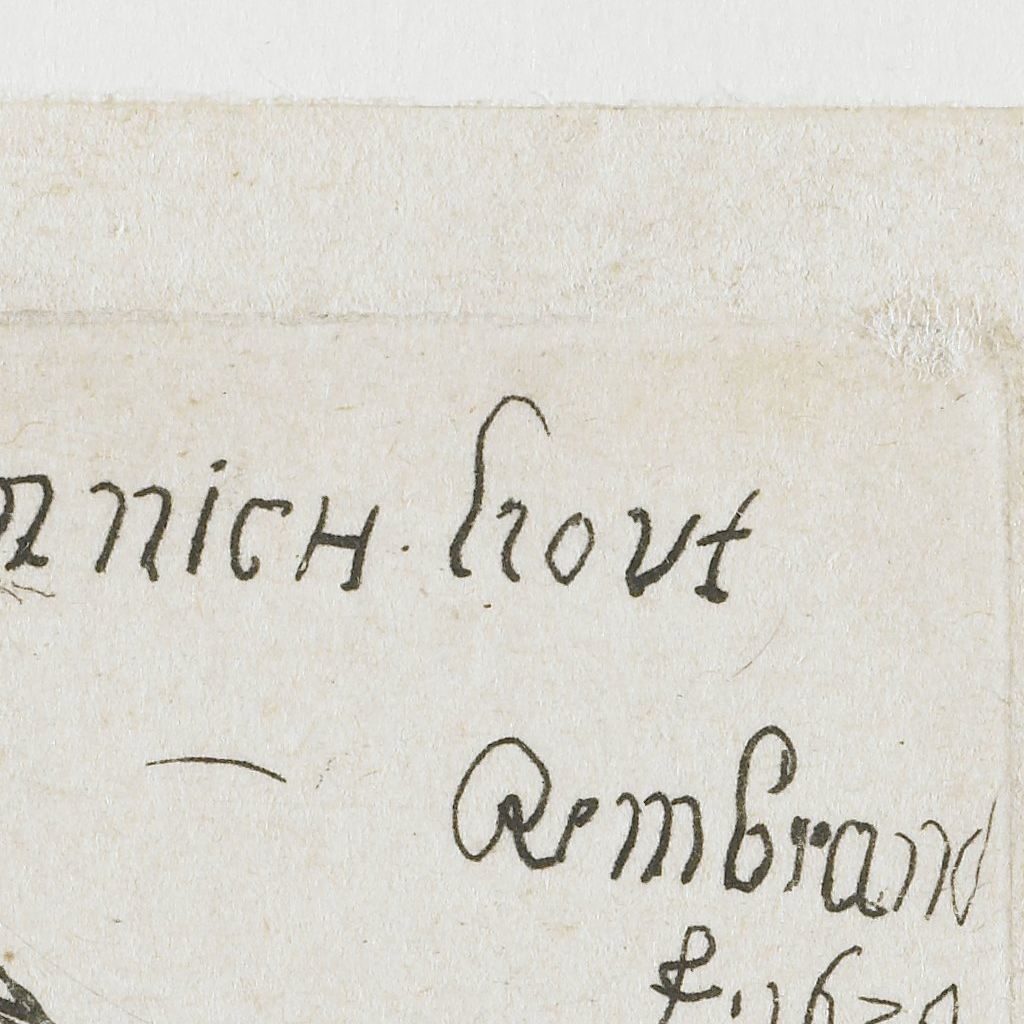 nnich kout
Rembrand
f.